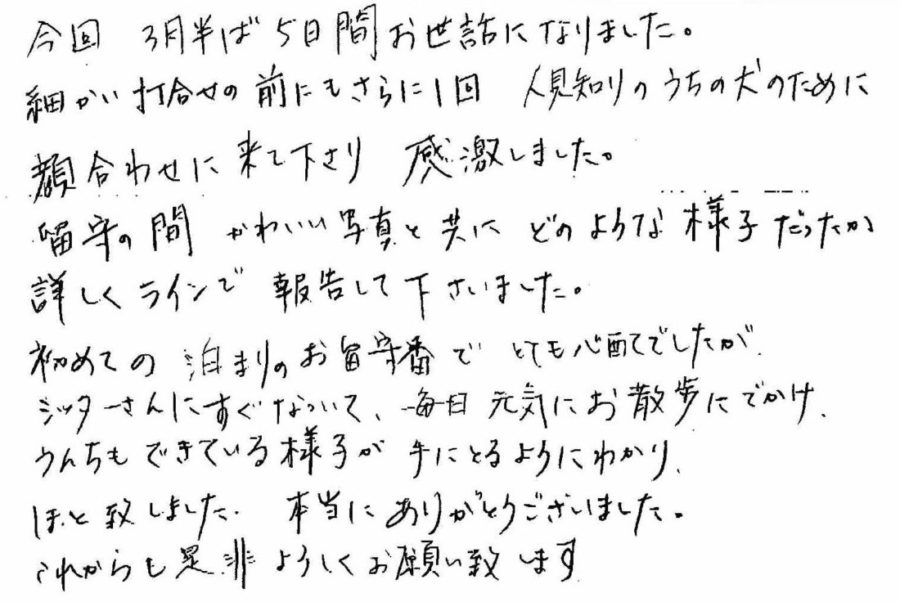 今回 3月半ば 5日間 お世話になりました。
細かい打合せの前にもさらに1回 人見知りのうちの犬のために
顔合わせに来て下さり 感激しました。
留守の間 かわいい写真と共に どのような様子だったか
詳しくラインで 報告して下さいました。
初めての 泊まりのお留守番で とても心配でしたが、
シッターさんにすぐなついて、毎日 元気にお散歩にでかけ、
うんちもできている様子が 手にとるようにわかり、
ほっと致しました。 本当にありがとうございました。
これからも是非よろしくお願い致します